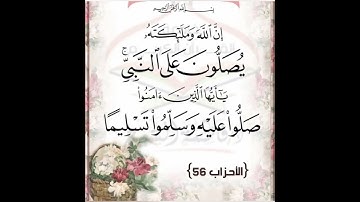 بِسْمِ اللَّهِ الرَّحْمَٰنِ الرَّحِيمِ
إِنَّ ٱللَّهَ وَمَلَٰٓئِكَتَهُۥ
يُصَلُّونَ عَلَى ٱلنَّبِىِّ ۚ
يَٰٓأَيُّهَا ٱلَّذِينَ ءَامَنُوا۟
صَلُّوا۟ عَلَيْهِ وَسَلِّمُوا۟ تَسْلِيمًا
{الأحزاب 56}